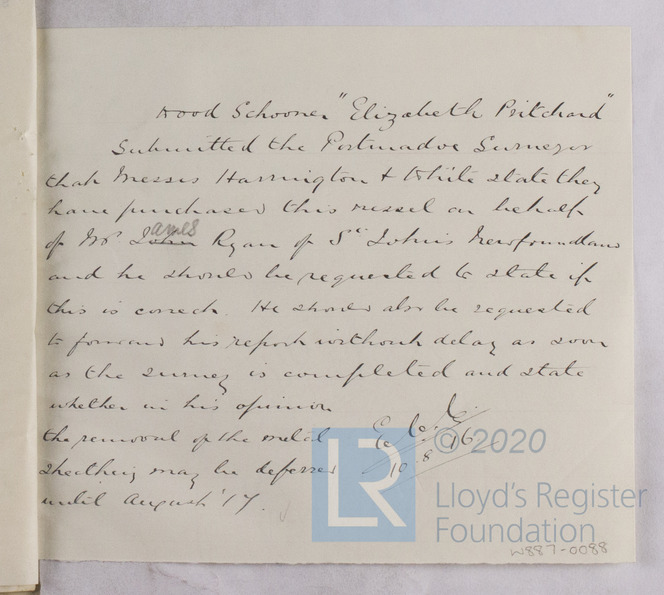 Wood Schooner "Elizabeth Pritchard"
Submitted the Portmadoc Surveyor
that Messrs Harrington & White state they
have purchased this vessel on behalf
of Mr John ames Ryan of St John's Newfoundland
and he should be requested to state if
this is correct. He should also be requested
to forward his report without delay as soon
as the survey is completed and state
whether in his opinion
the removal of the metal
sheathing may be deferred
until August '17.
10 8 16
© 2020
LR
Lloyd's Register
Foundation
W887-0088